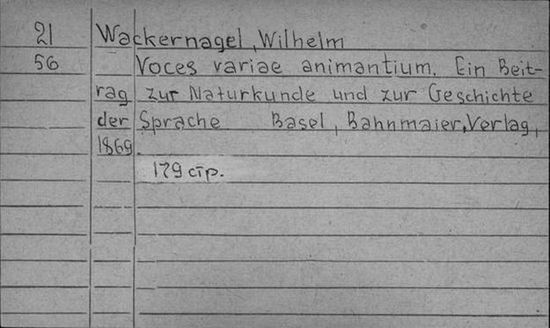 21 Wackernagel, Wilhelm
56 Voces variae animantium. Ein Beit-
rag zur Naturkunde und zur Geschichte
der Sprache Basel, Bahnmaier, Verlag,
1869.
179 стр.